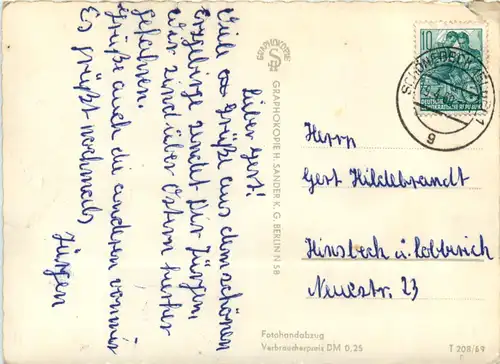 Lieber Gert!
Viele Grüße aus dem schönen
Erzgebirge sendet Dir Jürgen
Wir sind über Ostern hierher
gefahren.
Grüße auch die anderen von mir
Es grüßt nochmals
Jürgen
GRAPHOKOPIE
GRAPHOKOPIE H. SANDER K. G. BERLIN N 58
10
DEUTSCHE
DEMOKRATISCHE REPUBLIK
g
Herrn
Gert Hildebrandt
Hinsbeck ü. Lobberich
Neuestr. 23
Fotohandabzug
Verbraucherpreis DM 0,25
T 208/69